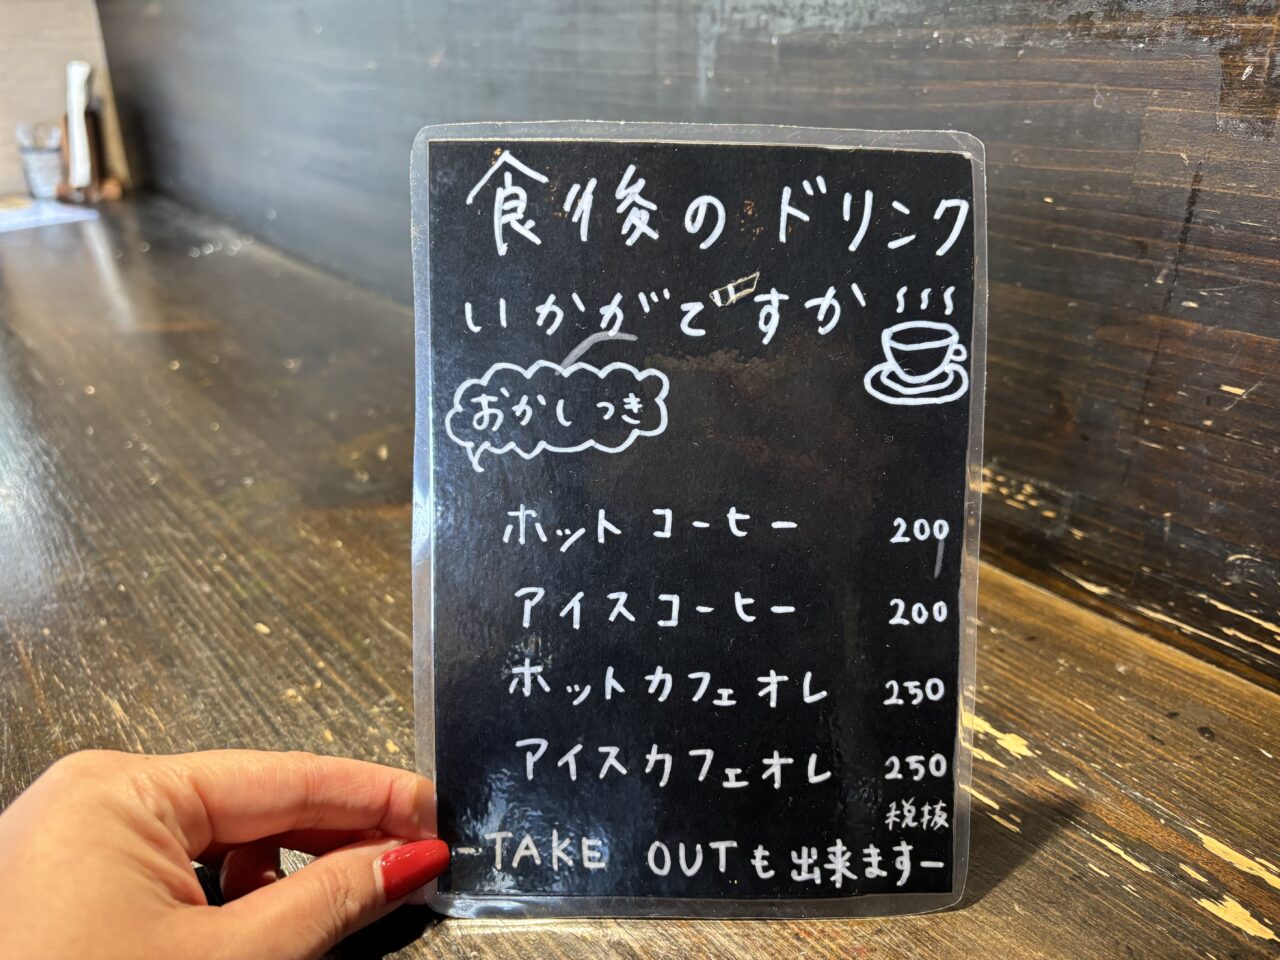 食後の ドリンク
いかがですか
おかしつき
ホットコーヒー 200
アイスコーヒー 200
ホットカフェオレ 250
アイスカフェオレ 250
税抜
-TAKE OUTも出来ます-